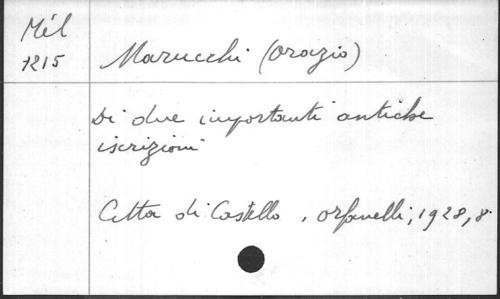 Mél
1215
Marucchi (Orazio)
Di due importanti antiche
iscrizioni
Citta di Castello, Orfanelli, 1928, 8°